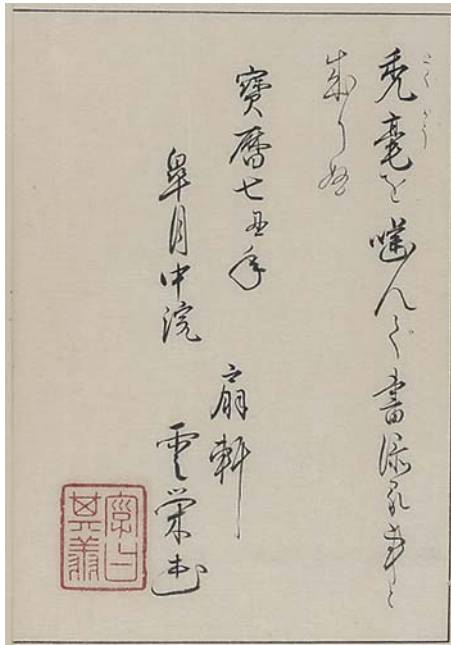 禿毫を噛んで書添る事と
成りぬ
寶暦七丑年
皐月中浣
扇軒
雲栄書